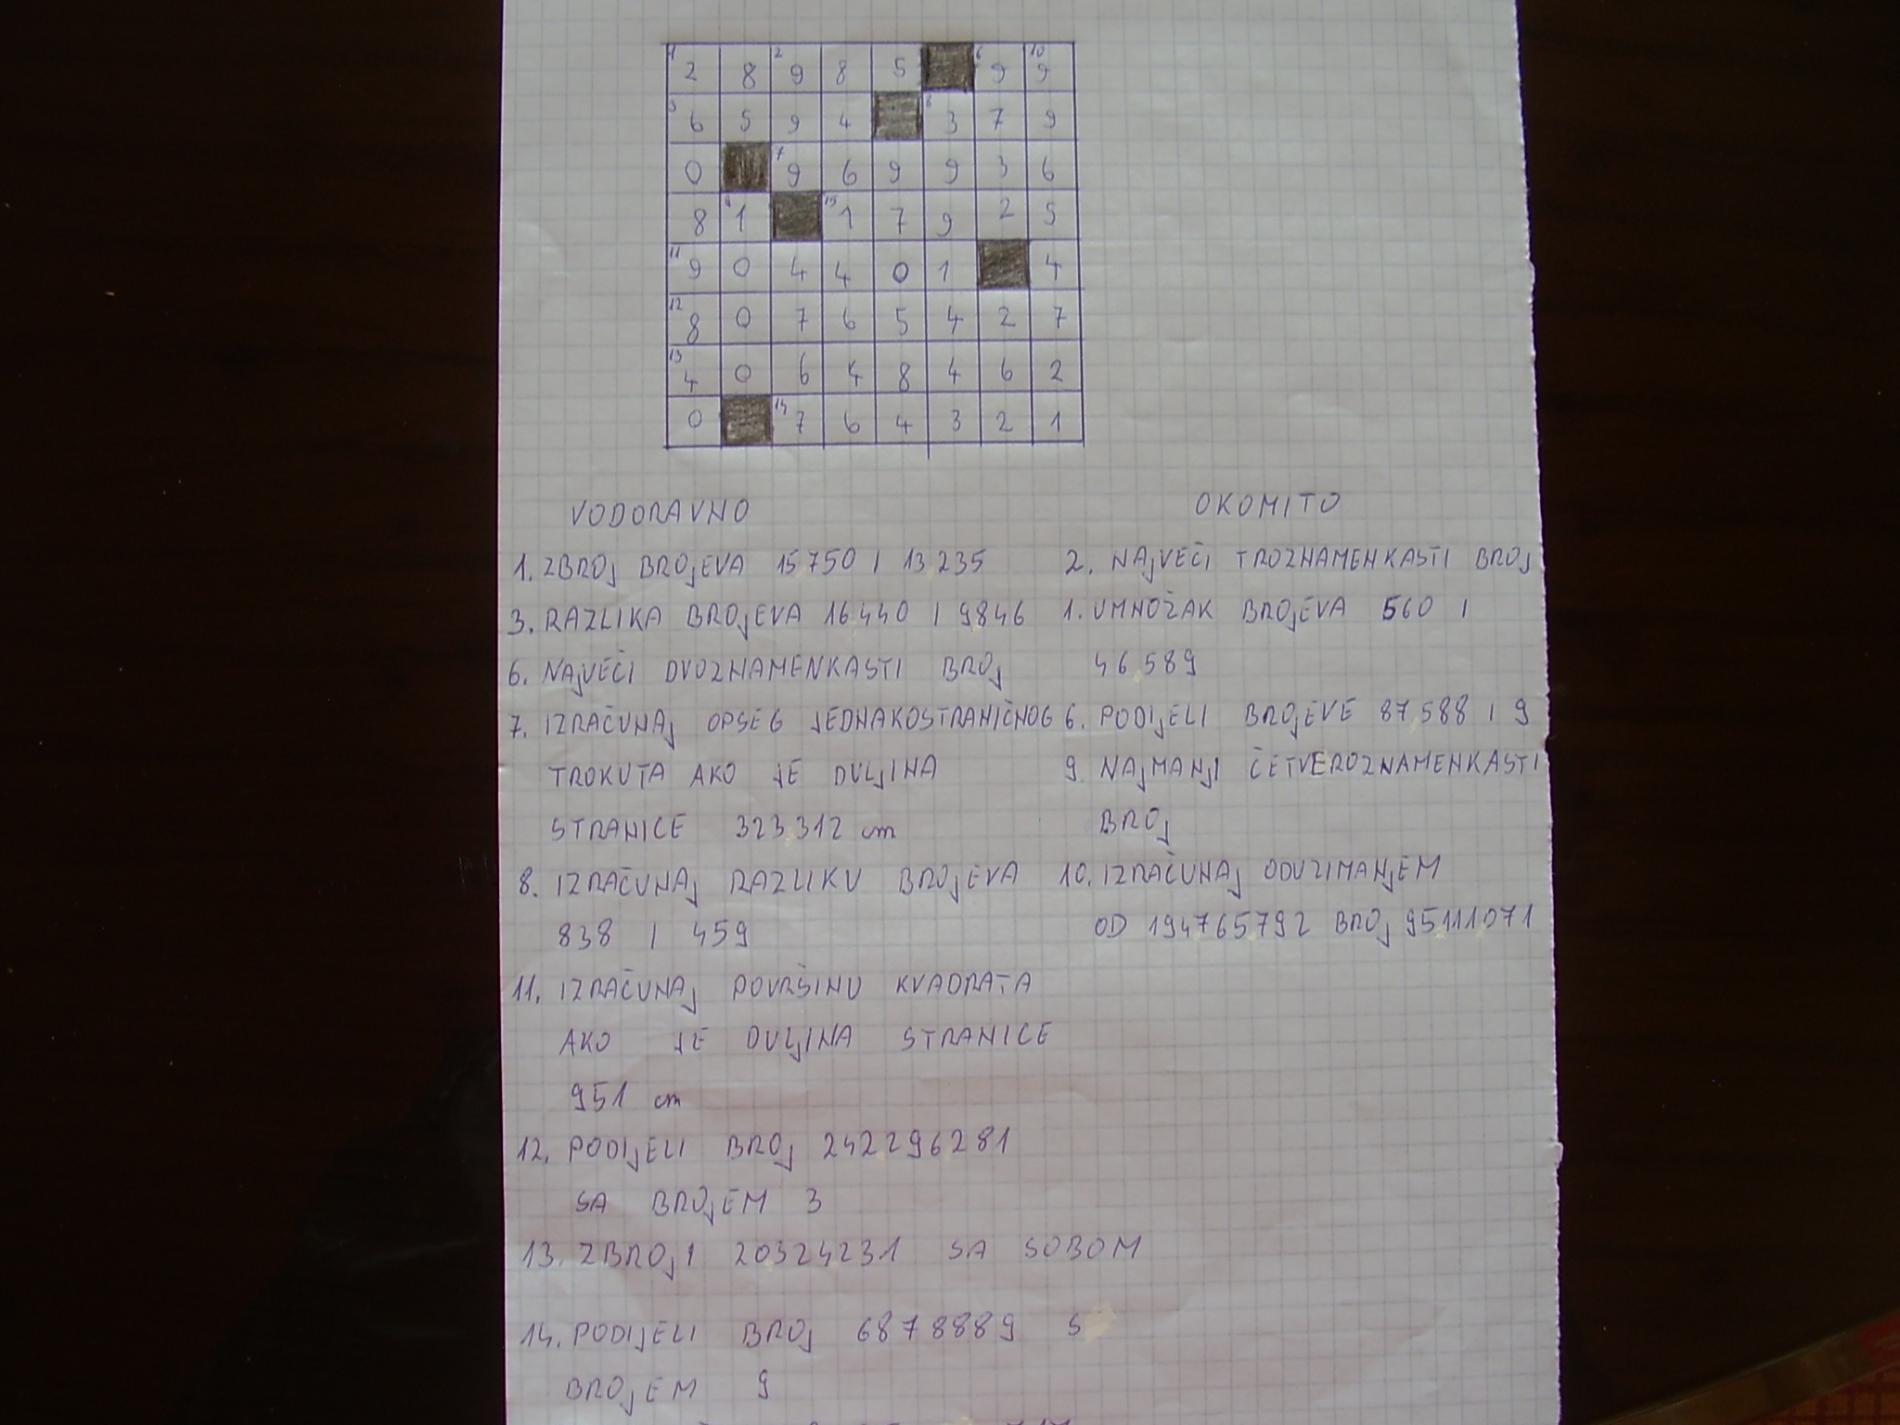 1 2 8 2 9 8 5 6 9 10 9
3 6 5 9 4 8 3 7 9
0 7 9 6 9 9 3 6
8 9 1 15 1 7 9 2 5
11 9 0 4 4 0 1 4
12 8 0 7 6 5 4 2 7
13 4 0 6 4 8 4 6 2
0 14 7 6 4 3 2 1
VODORAVNO
1. ZBROJ BROJEVA 15 750 I 13 235
3. RAZLIKA BROJEVA 16 440 I 9846
6. NAJVEĆI DVOZNAMENKASTI BROJ
7. IZRAČUNAJ OPSEG JEDNAKOSTRANIČNOG
TROKUTA AKO JE DULJINA
STRANICE 323.312 cm
8. IZRAČUNAJ RAZLIKU BROJEVA
838 I 459
11. IZRAČUNAJ POVRŠINU KVADRATA
AKO JE DULJINA STRANICE
951 cm
12. PODIJELI BROJ 242296281
SA BROJEM 3
13. ZBROJI 20324231 SA SOBOM
14. PODIJELI BROJ 6878889 S
BROJEM 9
OKOMITO
2. NAJVEĆI TROZNAMENKASTI BROJ
1. UMNOŽAK BROJEVA 560 I
46.589
6. PODIJELI BROJEVE 87.588 I 9
9. NAJMANJI ČETVEROZNAMENKASTI
BROJ
10. IZRAČUNAJ ODUZIMANJEM
OD 194765792 BROJ 95111071